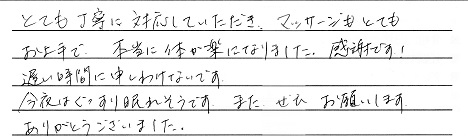 とても丁寧に対応していただき、マッサージもとても
お上手で、本当に体が楽になりました。感謝です!
遅い時間に申しわけないです
今夜はぐっすり眠れそうです。また、ぜひ お願いします
ありがとうございました。